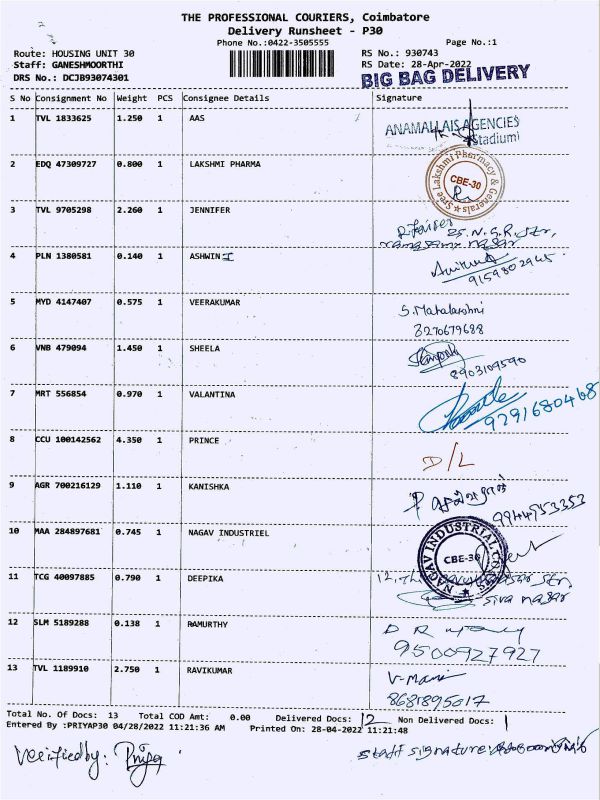 THE PROFESSIONAL COURIERS, Coimbatore
Delivery Runsheet - P30
Phone No.:0422-3505555
Page No.:1
Route: HOUSING UNIT 30
RS No.: 930743
Staff: GANESHMOORTHI
RS Date: 28-Apr-2022
DRS No.: DCJB93074301
BIG BAG DELIVERY
S No Consignment No Weight PCS Consignee Details Signature
1 TVL 1833625 1.250 1 AAS
ANAMALLAIS AGENCIES
Stadiumi
2 EDQ 47309727 0.800 1 LAKSHMI PHARMA
Sree Lakshmi Pharmacy & Generals
CBE-30
3 TVL 9705298 2.260 1 JENNIFER
25.N.G.R. Str,
nagar
4 PLN 1380581 0.140 1 ASHWIN I
9159802945
5 MYD 4147407 0.575 1 VEERAKUMAR
S. Mahalakshmi
8270679688
6 VNB 479094 1.450 1 SHEELA
8903109590
7 MRT 556854 0.970 1 VALANTINA
9291680468
8 CCU 100142562 4.350 1 PRINCE
D/L
9 AGR 700216129 1.110 1 KANISHKA
9944753353
10 MAA 284897681 0.745 1 NAGAV INDUSTRIEL
NAGAV INDUSTRIAL
CBE-30
11 TCG 40097885 0.790 1 DEEPIKA
12,
Str,
siva nagar
12 SLM 5189288 0.138 1 RAMURTHY
9500927927
13 TVL 1189910 2.750 1 RAVIKUMAR
V-Mani
8681895017
Total No. Of Docs: 13 Total COD Amt: 0.00 Delivered Docs: 12 Non Delivered Docs: 1
Entered By :PRIYAP30 04/28/2022 11:21:36 AM Printed On: 28-04-2022 11:21:48
Verified by: Priya
staff signature: